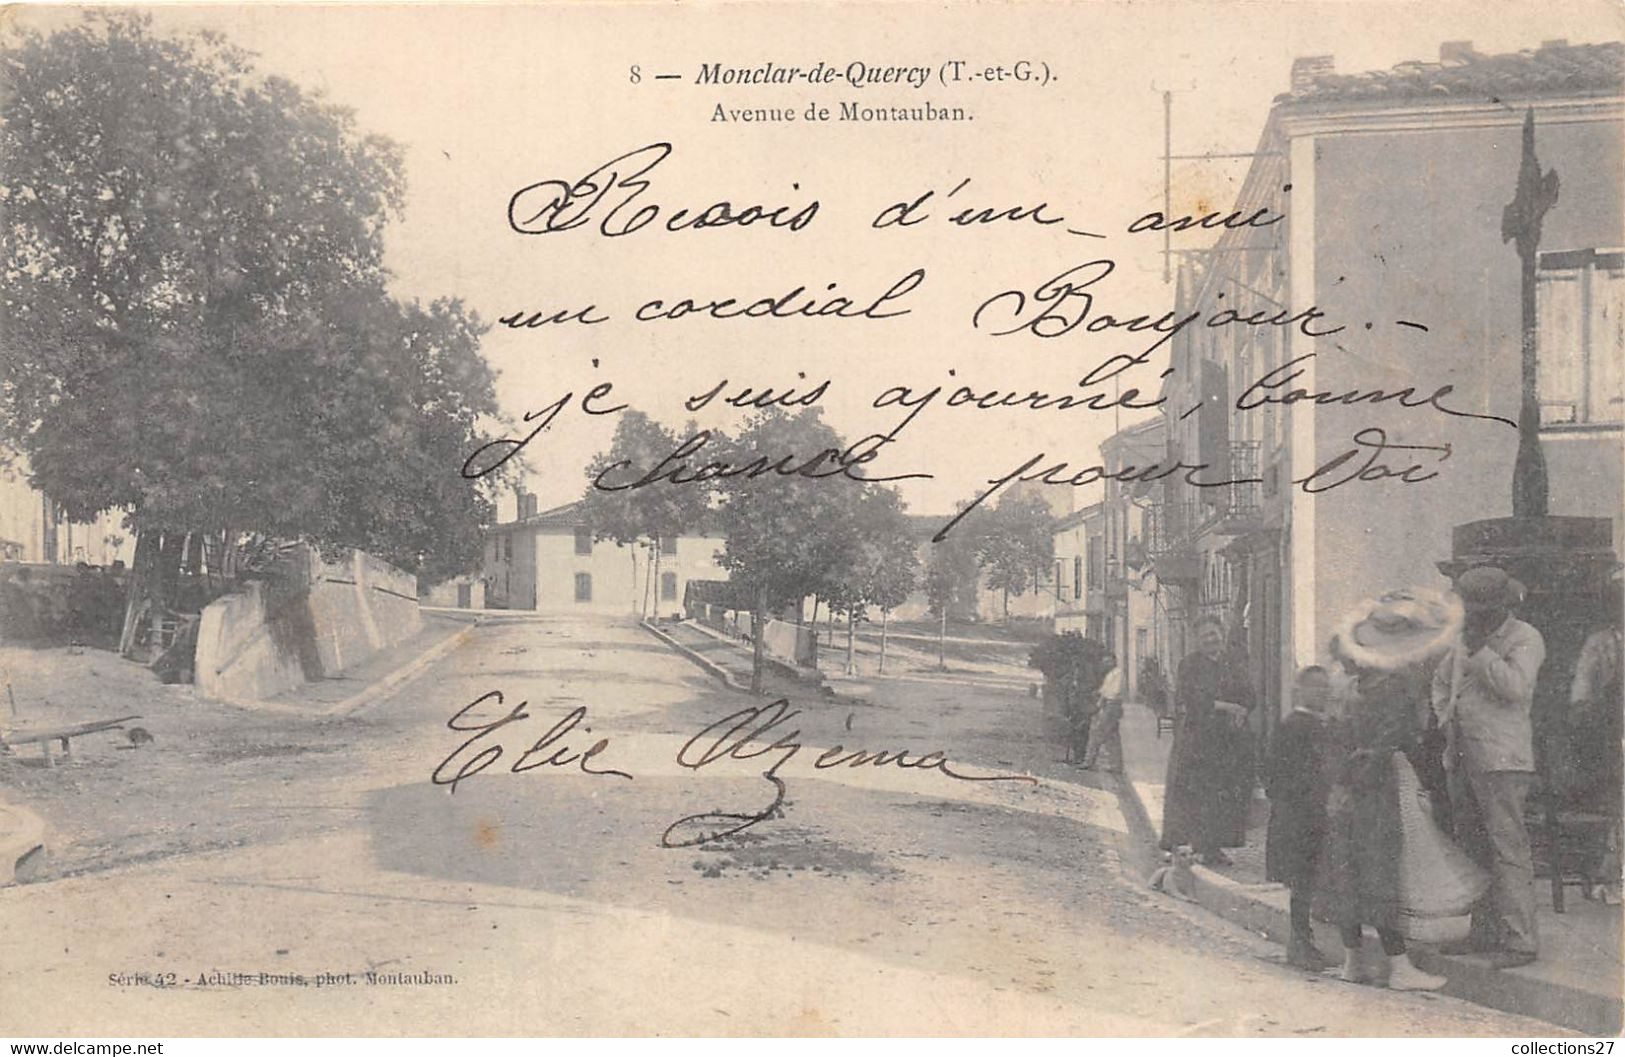 8 — Monclar-de-Quercy (T.-et-G.).
Avenue de Montauban.
Recois d'un ami
un cordial Bonjour. —
je suis ajourné, bonne
chance pour toi
Elie Azéma
Série 42 - Achille Bouis, phot. Montauban.
collections27